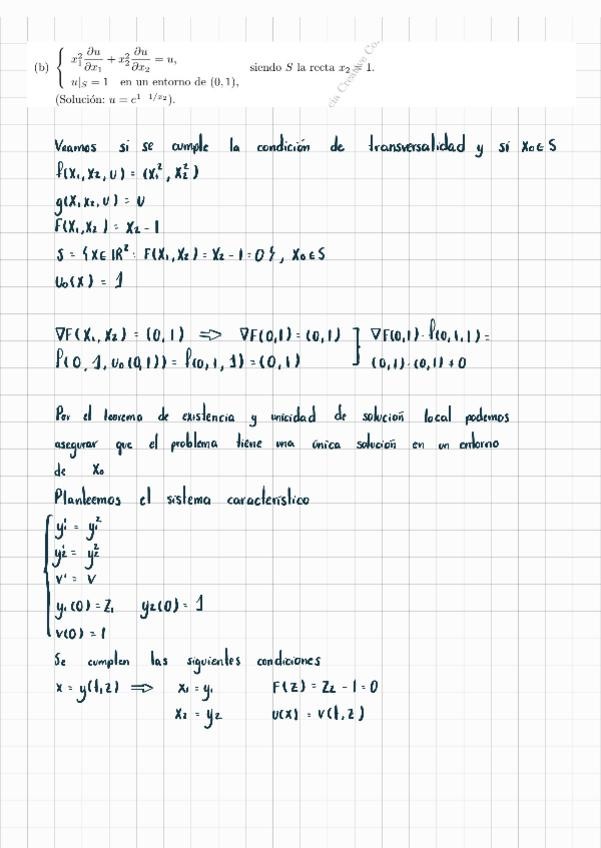 (b) { x₁² ∂u/∂x₁ + x₂² ∂u/∂x₂ = u,
u|S = 1 en un entorno de (0, 1), siendo S la recta x₂ = 1.
(Solución: u = e^{1−1/x₂}).
Veamos si se cumple la condición de transversalidad y si X₀ ∈ S
f(X₁, X₂, U) = (X₁², X₂²)
g(X₁, X₂, U) = U
F(X₁, X₂) = X₂ - 1
S = { X ∈ ℝ² : F(X₁, X₂) = X₂ - 1 = 0 }, X₀ ∈ S
U₀(X) = 1
∇F(X₁, X₂) = (0, 1) ⟹ ∇F(0, 1) = (0, 1) ] ∇F(0, 1) · f(0, 1, 1) =
f(0, 1, U₀(0, 1)) = f(0, 1, 1) = (0, 1) ] (0, 1) · (0, 1) ≠ 0
Por el teorema de existencia y unicidad de solución local podemos
asegurar que el problema tiene una única solución en un entorno
de X₀
Planteemos el sistema característico
y₁' = y₁²
y₂' = y₂²
v' = v
y₁(0) = z₁ y₂(0) = 1
v(0) = 1
Se cumplen las siguientes condiciones
x = y(t, z) ⟹ x₁ = y₁ F(z) = z₂ - 1 = 0
x₂ = y₂ u(x) = v(t, z)